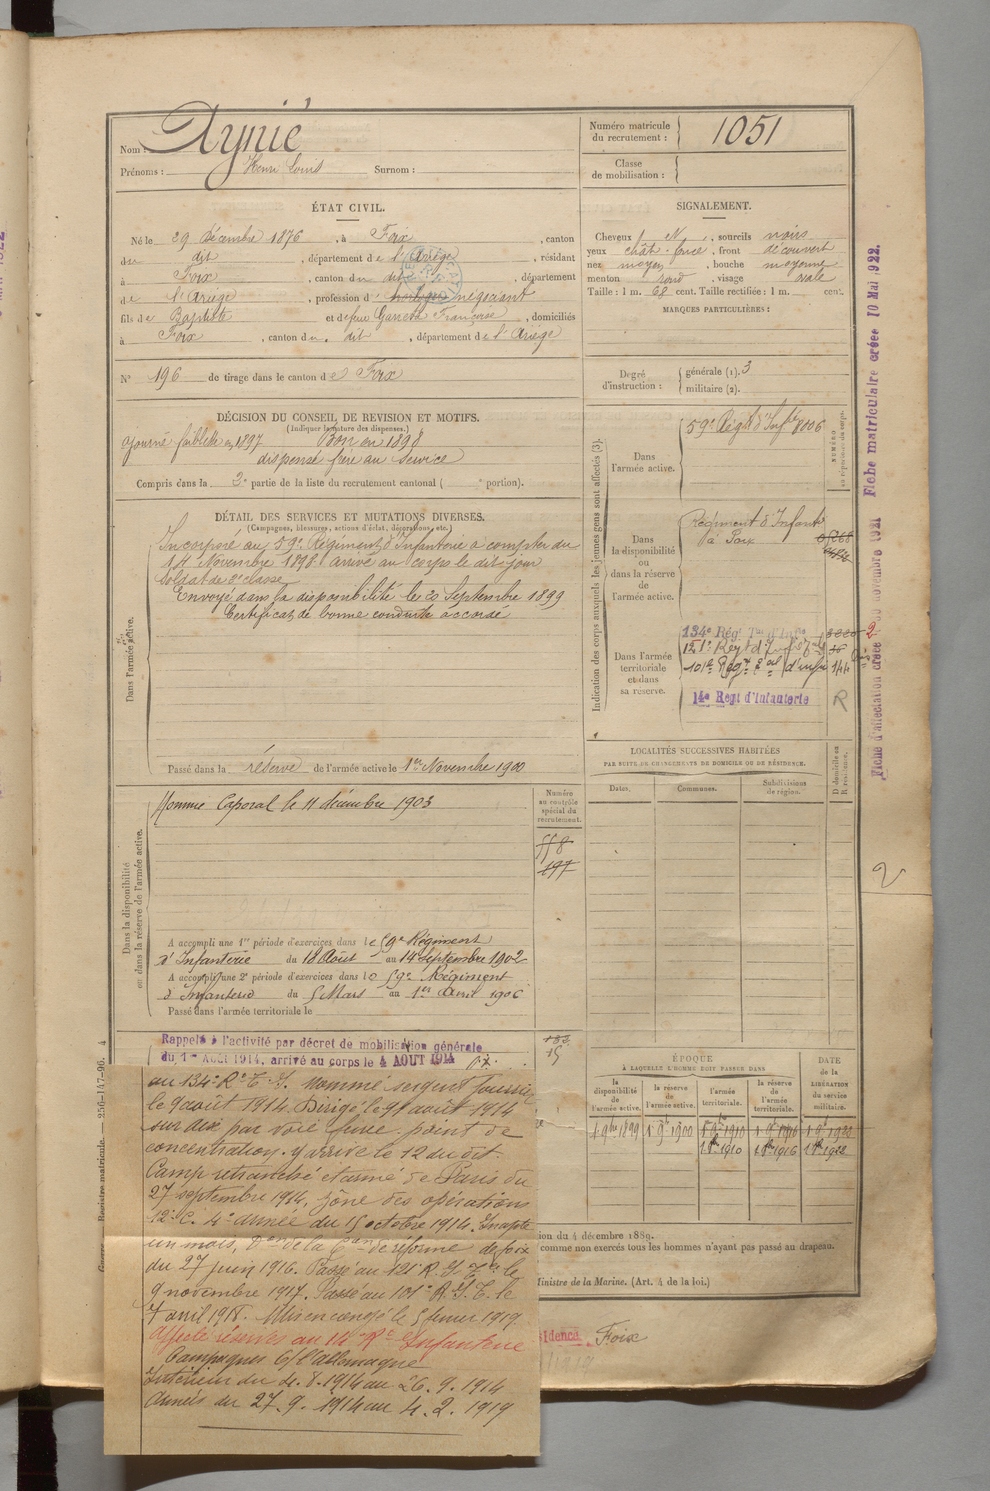 Nom : Aynié
Prénoms : Henri Louis Surnom :
Numéro matricule du recrutement : 1051
Classe de mobilisation :
ÉTAT CIVIL.
Né le 29 décembre 1876, à Foix, canton
du dit, département de l'Ariège, résidant
à Foix, canton du dit, département
de l'Ariège, profession d' horloger négociant
fils de Baptiste et de feue Françoise, domiciliés
à Foix, canton du dit, département de l'Ariège
N° 196 de tirage dans le canton de Foix
SIGNALEMENT.
Cheveux N, sourcils noirs
yeux chât. foncé, front découvert
nez moyen, bouche moyenne
menton rond, visage ovale
Taille : 1 m. 68 cent. Taille rectifiée : 1 m. cent.
MARQUES PARTICULIÈRES :
Degré d'instruction : générale (1). 3
militaire (2).
DÉCISION DU CONSEIL DE REVISION ET MOTIFS.
(Indiquer la nature des dispenses.)
ajourné faiblesse en 1897 Bon en 1898
dispensé frère au service
Compris dans la 3e partie de la liste du recrutement cantonal ( e portion).
DÉTAIL DES SERVICES ET MUTATIONS DIVERSES.
(Campagnes, blessures, actions d'éclat, décorations, etc.)
Dans l'armée active.
Incorporé au 59e Régiment d'Infanterie à compter du
14 Novembre 1898 arrivé au corps le dit jour
soldat de 2e classe
Envoyé dans la disponibilité le 20 Septembre 1899
Certificat de bonne conduite accordé
Passé dans la réserve de l'armée active le 1er Novembre 1900
Indication des corps auxquels les jeunes gens sont affectés (3).
Dans l'armée active.
59e Régt d'Infie 8006
NUMÉRO au répertoire du corps.
Dans la disponibilité ou dans la réserve de l'armée active.
Régiment d'Infante
à Foix
Dans l'armée territoriale et dans sa réserve.
134e Rég. Ter. d'Infie
121e Regt d'Infie
101e Régt d'infie 144
14e Regt d'Infanterie R
LOCALITÉS SUCCESSIVES HABITÉES
PAR SUITE DE CHANGEMENTS DE DOMICILE OU DE RÉSIDENCE.
Dates. Communes. Subdivisions de région. D domicile ou R résidence.
Dans la disponibilité ou dans la réserve de l'armée active.
Nommé Caporal le 11 décembre 1903
Numéro au contrôle spécial du recrutement.
558
197
A accompli une 1re période d'exercices dans le 59e Régiment
d'Infanterie du 18 Août au 14 Septembre 1902
A accompli une 2e période d'exercices dans le 59e Régiment
d'Infanterie du 5 Mars au 1er Avril 1906
Passé dans l'armée territoriale le
Rappelé à l'activité par décret de mobilisation générale
du 1er Août 1914, arrivé au corps le 4 AOUT 1914
au 134e R. T. I. nommé sergent fourrier
le 9 août 1914. Dirigé le 9 août 1914
sur Aix par voie ferrée. point de
concentration. y arrive le 12 du dit.
Camp retranché et armé de Paris du
27 septembre 1914, zône des opérations
12e C. 4e armée du 15 octobre 1914. Inapte
un mois, Don de la Con de réforme de Foix
du 27 juin 1916. Passé au 121e R. I. T. le
9 novembre 1917. Passé au 101e R. I. T. le
7 avril 1918. Mis en congé le 5 février 1919.
Affecté réserves au 14e Rt Infanterie
Campagnes C/ l'Allemagne
Intérieur du 4. 8. 1914 au 26. 9. 1914
Armées du 27. 9. 1914 au 4. 2. 1919
ÉPOQUE
À LAQUELLE L'HOMME DOIT PASSER DANS
la disponibilité de l'armée active. la réserve de l'armée active. l'armée territoriale. la réserve de l'armée territoriale. DATE de la LIBÉRATION du service militaire.
1 9bre 1899 1 9bre 1900 1 9bre 1910 1 9bre 1916
ion du 4 décembre 1889.
comme non exercés tous les hommes n'ayant pas passé au drapeau.
Ministre de la Marine. (Art. 4 de la loi.)
sidence Foix
Registre matricule. — 256-147-96. 4
Fiche d'affectation créée 30 novembre 1921 Fiche matriculaire créée 10 Mai 1922.
2